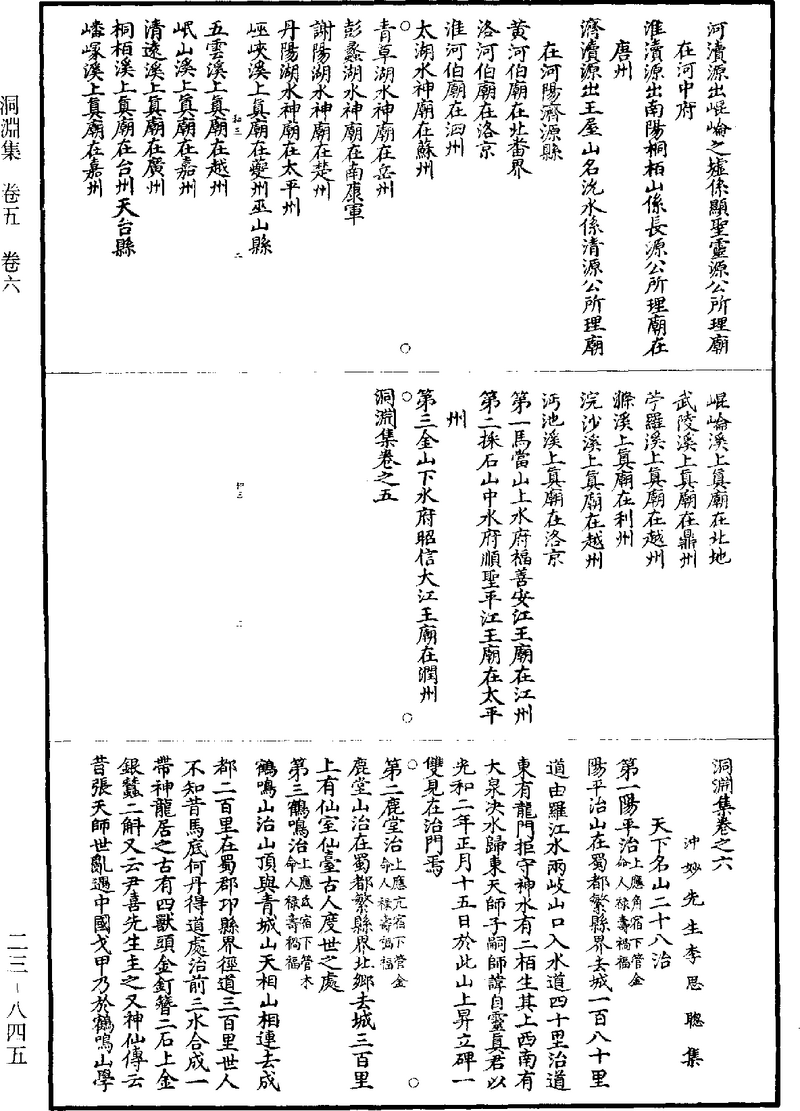 河瀆源出崐崘之墟係顯聖靈源公所理廟
在河中府
淮瀆源出南陽桐栢山係長源公所理廟在
唐州
濟瀆源出王屋山名沇水係清源公所理廟
在河陽濟源縣
黃河伯廟在北畨界
洛河伯廟在洛京
淮河伯廟在泗州
太湖水神廟在蘇州
青草湖水神廟在岳州
彭蠡湖水神廟在南康軍
謝陽湖水神廟在楚州
丹陽湖水神廟在太平州
巫峽溪上真廟在夔州巫山縣
五雲溪上真廟在越州
岷山溪上真廟在嘉州
清遠溪上真廟在廣州
桐栢溪上真廟在台州天台縣
嶓冢溪上真廟在嘉州
崐崘溪上真廟在北地
武陵溪上真廟在鼎州
苧羅溪上真廟在越州
溪上真廟在利州
浣沙溪上真廟在越州
沔池溪上真廟在洛京
第一馬當山上水府福善安江王廟在江州
第二採石山中水府順聖平江王廟在太平
州
第三金山下水府昭信大江王廟在潤州
洞淵集卷之五
洞淵集卷之六
沖妙先生李思聰集
天下名山二十八治
第一陽平治上應角宿下管金命人祿壽禍福
陽平治山在蜀都繁縣界去城一百八十里
道由羅江水兩岐山口入水道四十里治道
東有龍門拒守神水有二栢生其上西南有
大泉決水歸東天師子嗣師諱自靈真君以
光和二年正月十五日於此山上昇立碑一
雙見在治門焉
第二鹿堂治上應亢宿下管金命人祿壽禍福
鹿堂山治在蜀都繁縣界北鄉去城三百里
上有仙室仙臺古人度世之處
第三鶴鳴治上應氐宿下管木命人祿壽禍福
鶴鳴山治山頂與青城山天相山相連去成
都二百里在蜀郡卭縣界徑道三百里世人
不知昔馬底何丹得道處治前三水合成一
帶神龍居之古有四獸頭金釘簪二石上金
銀蠶二斛又云尹喜先生主之又神仙傳云
昔張天師世亂遇中國戈甲乃於鶴鳴山學
洞淵集　卷五　卷六
二三－八四五